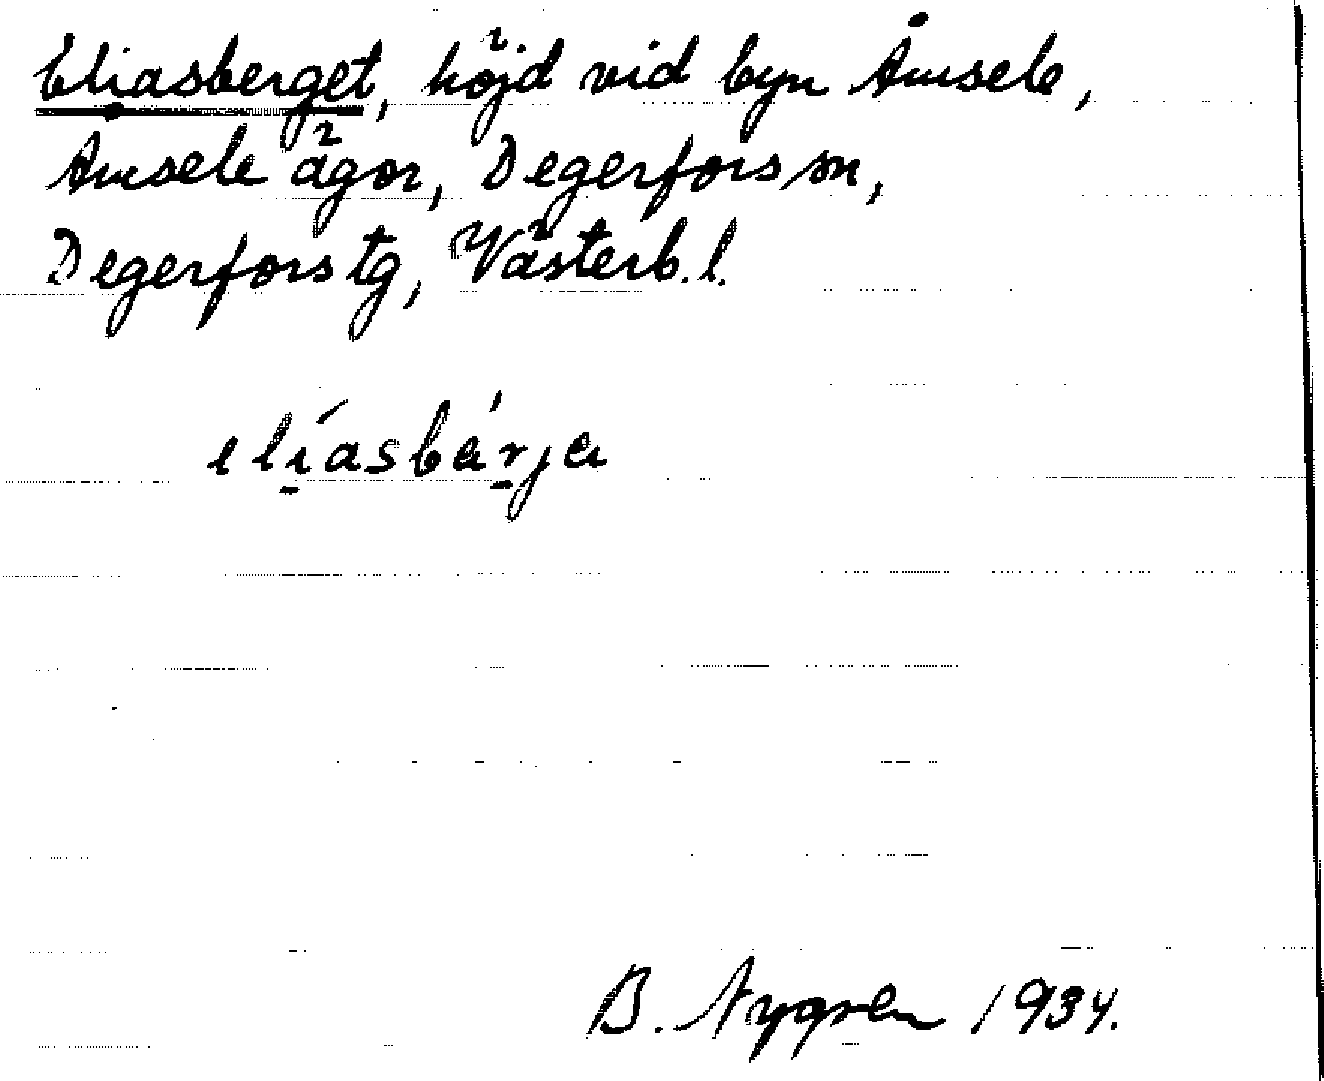 Eliasberget, höjd vid byn Åmsele,
Åmsele ägor, Degerfors sn,
Degerfors tg, Västerb. l.
elíasbárja
B. Nygren 1934.